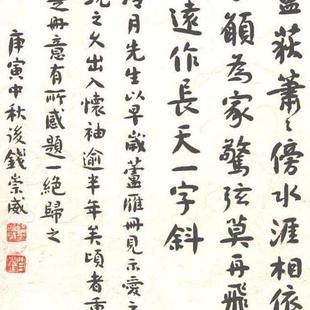 荻蕭々傍水涯相依
顧為家驚弦莫再飛
遠作長天一字斜
冷月先生以早歲蘆雁冊見示愛之
玩之久出入懷袖逾半年矣頃者重
是冊意有所感題一絕歸之
庚寅中秋後錢崇威